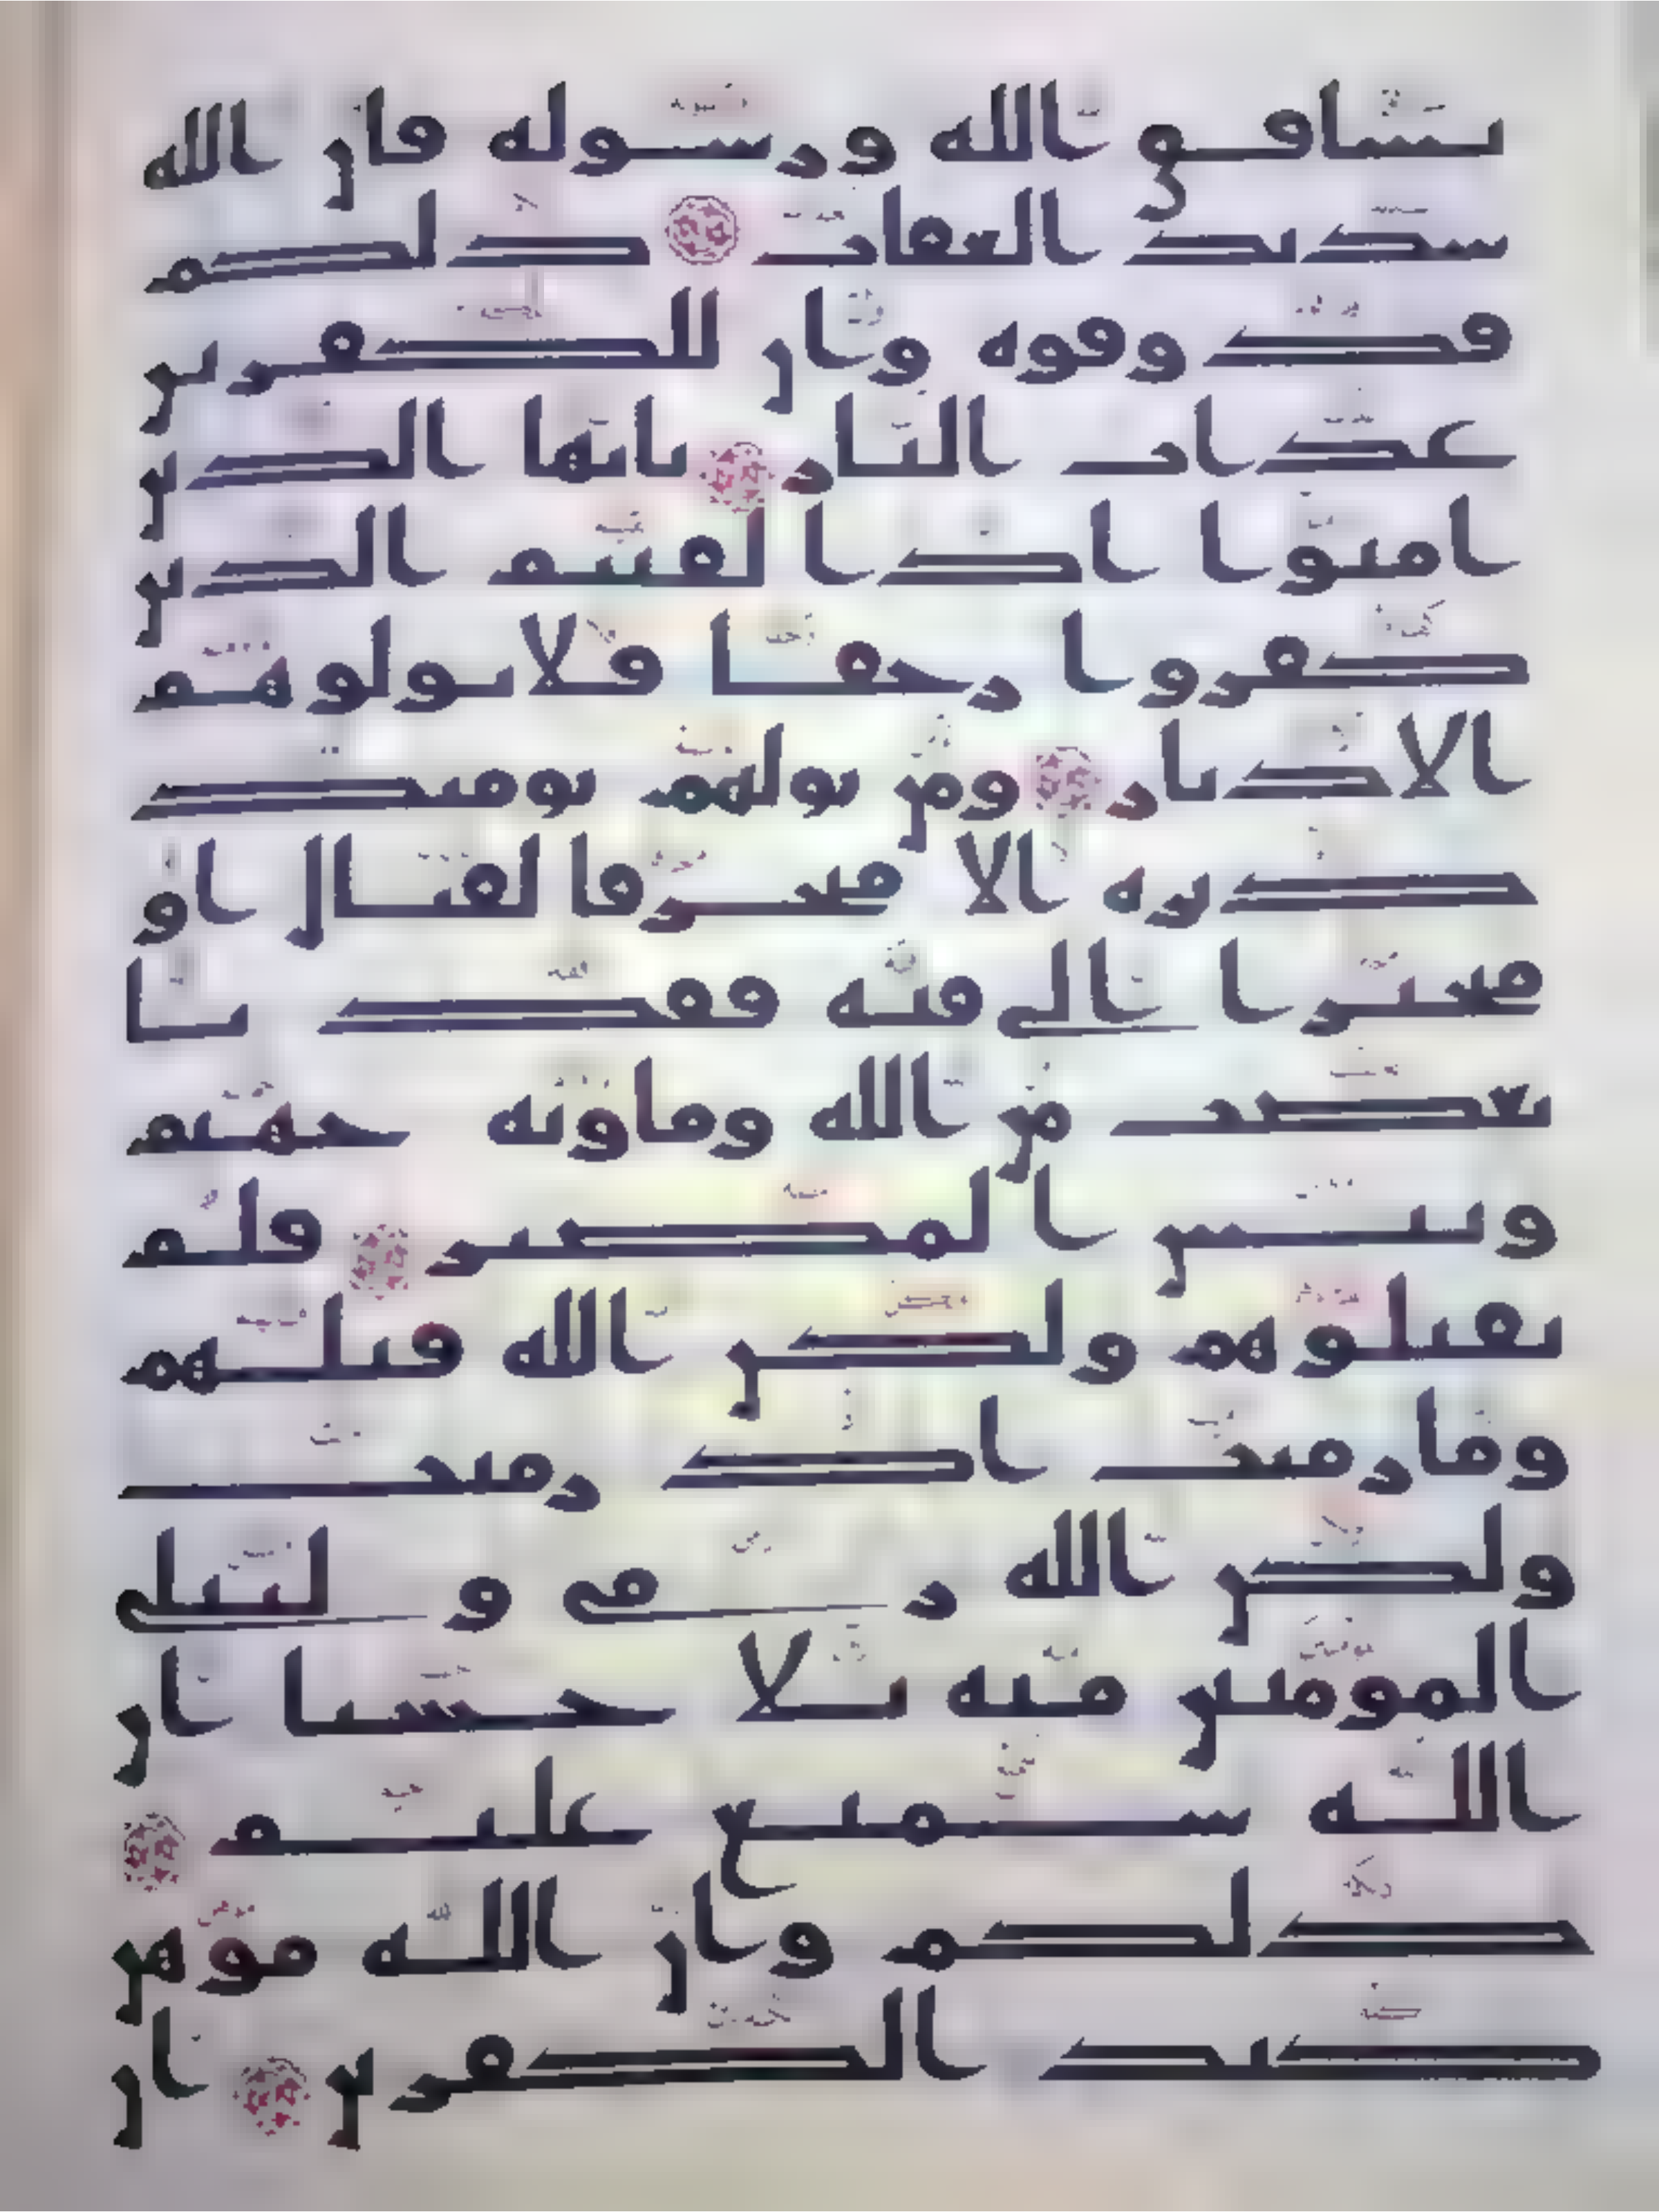 يشاقق الله ورسوله فان الله
شديد العقاب ذلكم
فذوقوه وان للكفرين
عذاب النار يايها الذين
امنوا اذا لقيتم الذين
كفروا زحفا فلا تولوهم
الادبار ومن يولهم يومئذ
دبره الا متحرفا لقتال او
متحيزا الى فئة فقد با
بغضب من الله وماويه جهنم
وبئس المصير فلم
تقتلوهم ولكن الله قتلهم
وما رميت اذ رميت
ولكن الله رمى و ليبلى
المومنين منه بلا حسنا ان
الله سميع عليم
ذلكم وان الله موهن
كيد الكفرين ان